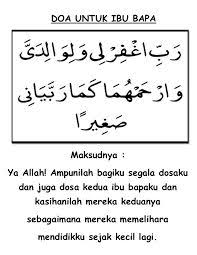 DOA UNTUK IBU BAPA
رَبِّ اغْفِرْ لِى وَلِوَالِدَىَّ
وَارْحَمْهُمَا كَمَا رَبَّيَانِى
صَغِيرًا
Maksudnya :
Ya Allah! Ampunilah bagiku segala dosaku
dan juga dosa kedua ibu bapaku dan
kasihanilah mereka keduanya
sebagaimana mereka memelihara
mendidikku sejak kecil lagi.